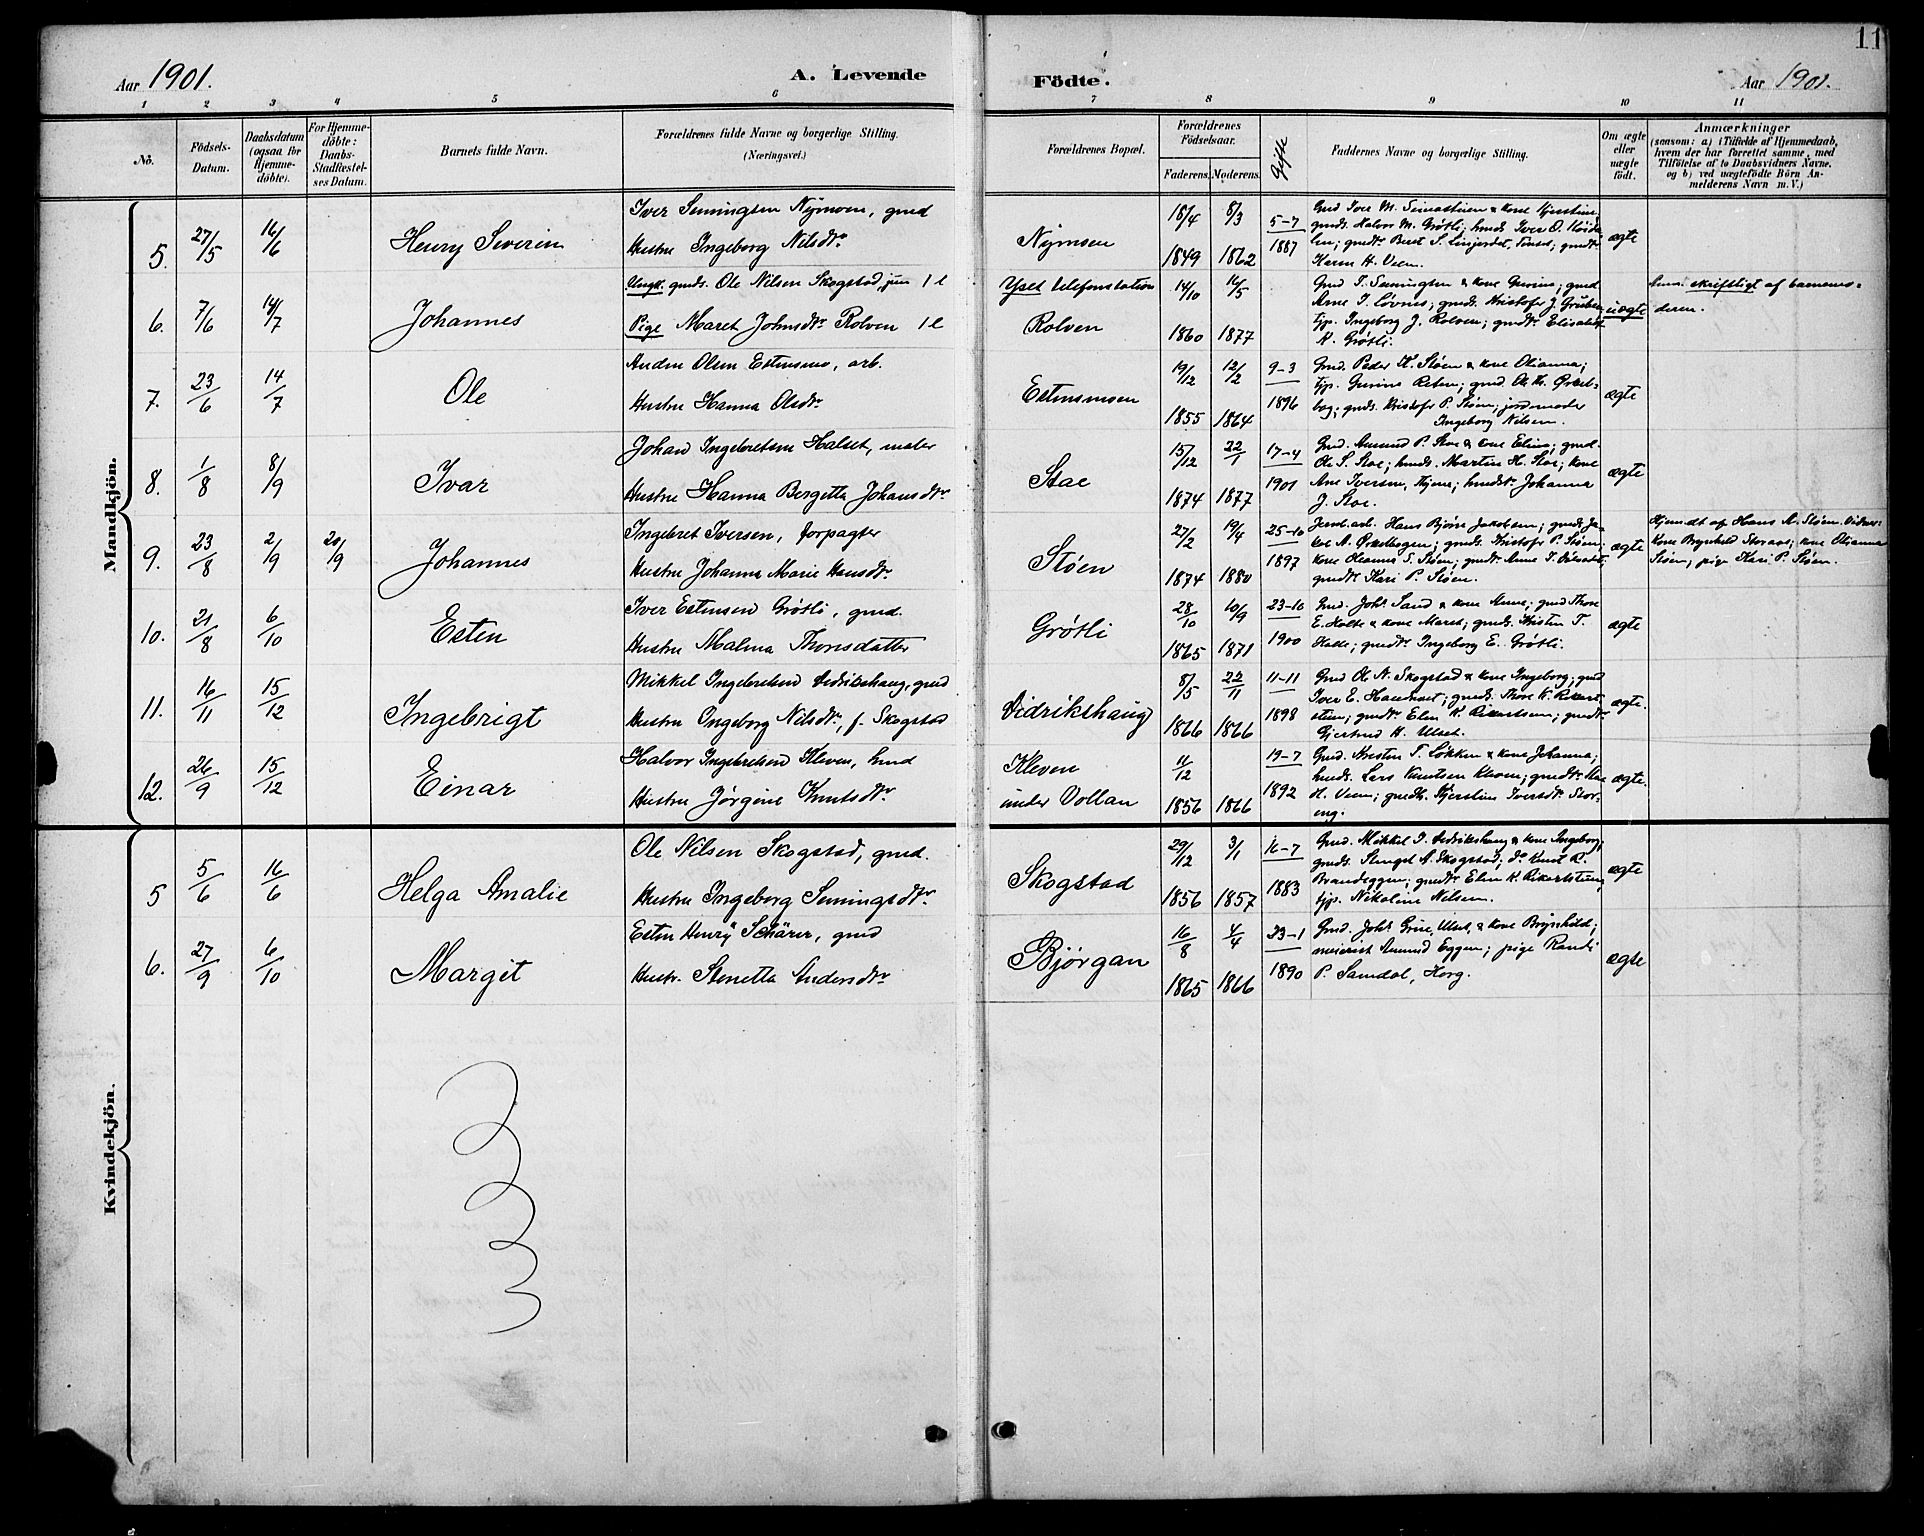 11
Aar 1901. A. Levende Fødte. Aar 1901.
1 2 3 4 5 6 7 8 9 10 11
No.
Fødsels-Datum.
Daabsdatum (ogsaa for Hjemmedöbte).
For Hjemmedöbte: Daabs-Stadfæstelses Datum.
Barnets fulde Navn.
Forældrenes fulde Navne og borgerlige Stilling. (Næringsvei.)
Forældrenes Bopæl.
Forældrenes Födselsaar.
Faderens. Moderens.
Gifte
Faddernes Navne og borgerlige Stilling.
Om ægte eller uægte født.
Anmærkninger
(saasom: a) i Tilfælde af Hjemmedaab, hvem der har forrettet samme, med Tilföielse af to Daabsvidners Navne, og b) ved uægtefödte Börn Anmelderens Navn m. V.)
Mandkjön.
5. 27/5 16/6 Henry Severin
Iver Semingsen Nymoen, gmd
Hustru Ingeborg Nilsdtr.
Nymoen 18/4 1849 8/3 1862 5-7 1887
Gmd Iver M. Simastuen & kone Kjerstine;
gmds. Halvor M. Grøtli; hmds Iver O.
gmdtr. Beret S. Linjordet, Tønset; gmdtr.
Karen H. Veen.
ægte
6. 7/6 14/7 Johannes
Ungk. gmds. Ole Nilsen Skogstad, jun 1 l
Pige Maret Johnsdtr. Rolven 1 l
Yset telefonstation
Rolven 14/10 1860 16/5 1877
Gmd T. Semingsen & kone Gurine; gmd
Arne T. Løvnes; gmds. Kristofer J.
tjp. Ingeborg J. Rolven; gmdtr. Elisabet
K. Grøtli.
uægte
skriftligt af barnemo-
deren.
7. 23/6 14/7 Ole
Anders Olsen Estensmo, arb.
Hustru Hanna Olsdtr.
Estensmoen 19/12 1855 12/2 1864 9-3 1896
Gmd. Peder K. Støen & kone Olianna;
tjp. Gurine Reten; gmd Ole Kr. Ørkel-
bog; gmds. Kristofer P. Støen; jordmoder
Ingeborg Nilsen.
ægte
8. 1/8 8/9 Ivar
Johan Ingebretsen Halset, maler
Hustru Hanna Bergetta Johansdtr.
Stae 15/12 1874 22/1 1877 17-4 1901
Gmd. Amund P. Stoe & kone Eline; gmd.
Ole S. Stoe; hmds. Martin H. Stoe; kone
Ane Iversen, Hjem; hmdstr. Johanna
J. Stoe.
ægte
9. 23/8 2/9 20/9 Johannes
Ingebret Iversen, forpagter
Hustru Johanna Marie Hansdtr.
Støen 27/2 1874 19/4 1880 25-10 1897
Jernb.arb. Hans Bjørn Jakobsen; gmds Ja-
kob A. Ørkelbogen; gmds. Kristofer P. Støen;
kone Oleanna S. Støen; gmdtr. Anne I.
gmdtr. Kari P. Støen.
ægte
Hjemdt. af Hans A. Støen. Vidner:
Kone Brynhild Storaas; kone Olianna
Støen; pige Kari P. Støen.
10. 21/8 6/10 Esten
Iver Estensen Grøtli, gmd.
Hustru Malina Thoresdatter
Grøtli 28/10 1865 10/9 1871 23-10 1900
Gmd. Johs. Sand & kone Anne; gmd Thore
E. Holte & kone Maret; gmds. Kristen T.
Holte; gmdtr. Ingeborg E. Grøtli.
ægte
11. 16/11 15/12 Ingebrigt
Mikkel Ingebretsen Vedrikshaug, gmd
Hustru Ingeborg Nilsdtr., f. Skogstad
Didrikshaug 8/5 1866 22/11 1866 11-11 1898
Gmd Ole N. Skogstad & kone Ingeborg; gmd
Iver E. Haudnæt; gmds. Thore K. Rikart-
stuen; gmdtr. Elen K. Rikartstuen; gmdtr.
Gjertrud H. Ulset.
ægte.
12. 26/9 15/12 Einar
Halvor Ingebretsen Kleven, hmd
Hustru Jørgine Knutsdtr.
Kleven
under Vollan 11/12 1856 1866 19-7 1892
Gmd. Kristen T. Løkken & kone Johanna;
hmds. Lars Knutsen Kleven; gmdtr. Mar
H. Veen; gmdtr. Kjerstine Iversdtr. Stor-
eng.
ægte.
Kvindekjön.
5 5/6 16/6 Helga Amalie
Ole Nilsen Skogstad, gmd.
Hustru Ingeborg Semingsdtr.
Skogstad 29/12 1856 3/1 1857 16-7 1883
Gmd. Mikkel I. Vedrikshaug & kone Ingeborg;
gmds. Stengel A. Skogstad; do Knut R.
Brandeggen; gmdtr. Elen K. Rikartstuen;
tjp. Nikoline Nilsen.
ægte
6. 27/9 6/10 Margit
Esten Henry Schärer, gmd
Hustr. Stenetta Andersdtr.
Bjørgan 16/8 1865 4/4 1866 23-1 1890
Gmd. Johs. Grue, Ulset, & kone Brynhild;
meierist Amund Eggen; pige Randi
P. Samdal, Horg.
ægte